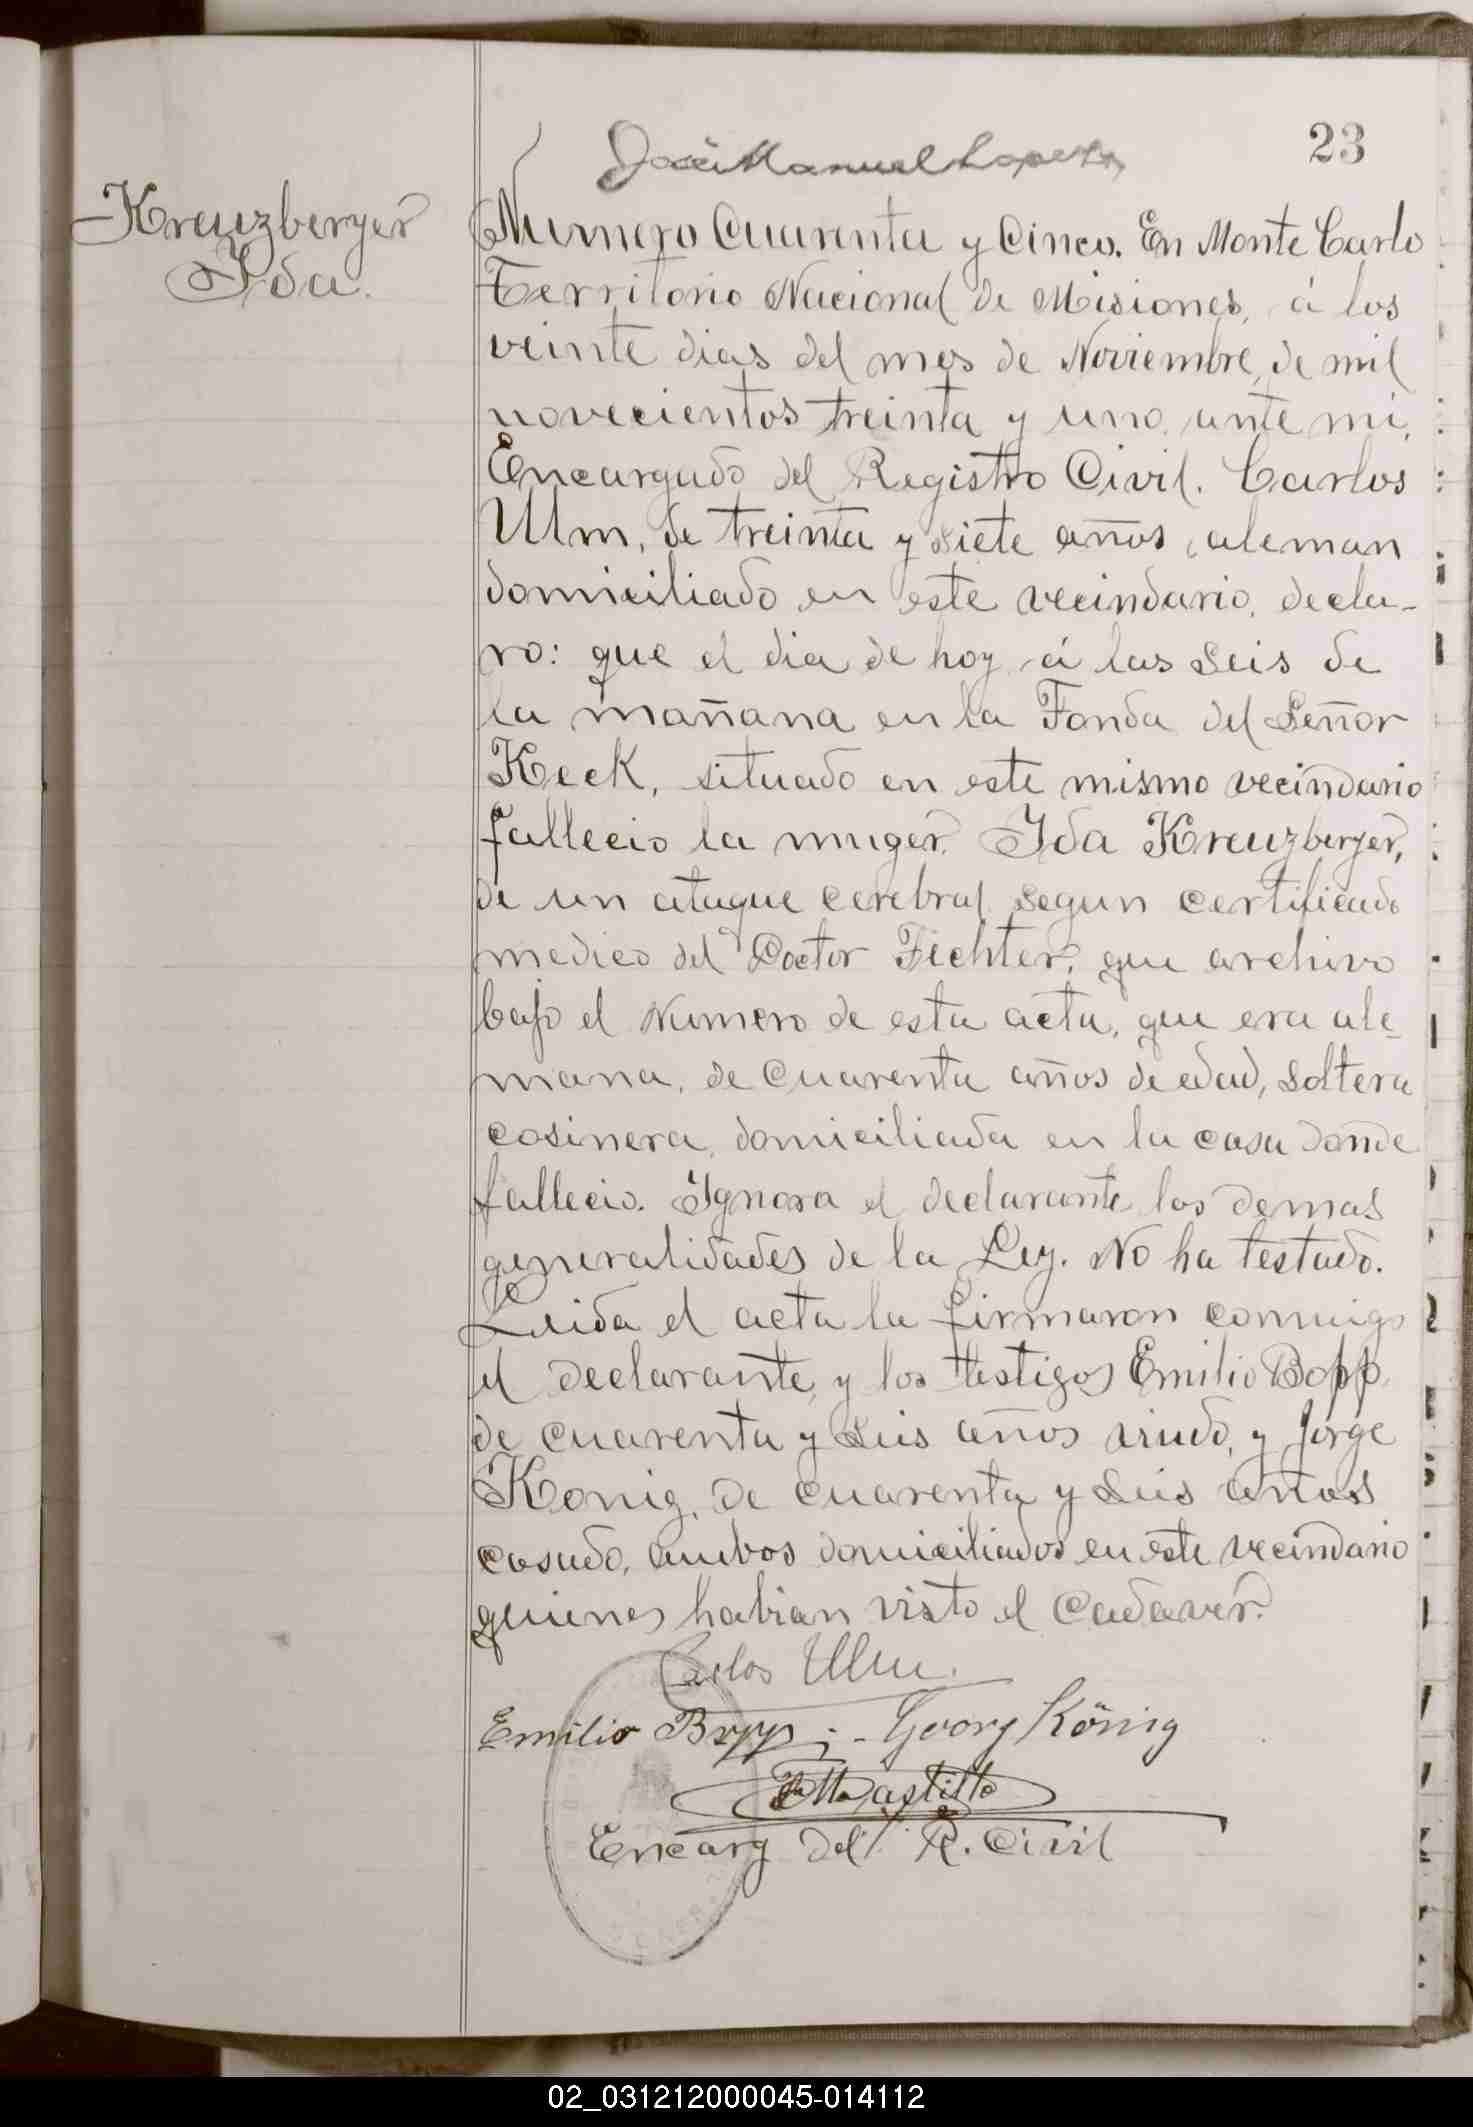 José Manuel Lopez
23
Kreuzberger
Ida.
Numero Cuarenta y Cinco. En Monte Carlo
Territorio Nacional de Misiones, á los
veinte dias del mes de Noviembre, de mil
novecientos treinta y uno, ante mi,
Encargado del Registro Civil. Carlos
Ulm, de treinta y siete años, aleman
domiciliado en este vecindario, decla-
ro: que el dia de hoy á las seis de
la mañana en la Fonda del Señor
Keck, situado en este mismo vecindario
fallecio la muger Ida Kreuzberger,
de un ataque cerebral segun certificado
medico del Doctor Fichter, que archivo
bajo el Numero de esta acta, que era ale-
mana, de cuarenta años de edad, soltera
cosinera, domiciliada en la casa donde
fallecio. Ignora el declarante los demas
generalidades de la Ley. No ha testado.
Leida el acta la firmaron conmigo
el declarante, y los testigos Emilio Bopp,
de cuarenta y seis años viudo, y Jorge
Konig, de cuarenta y seis años
casado, ambos domiciliados en este vecindario
quienes habian visto el cadaver.
Carlos Ulm.
Emilio Bopp ; - Georg König
Encarg del R. Civil
02_031212000045-014112